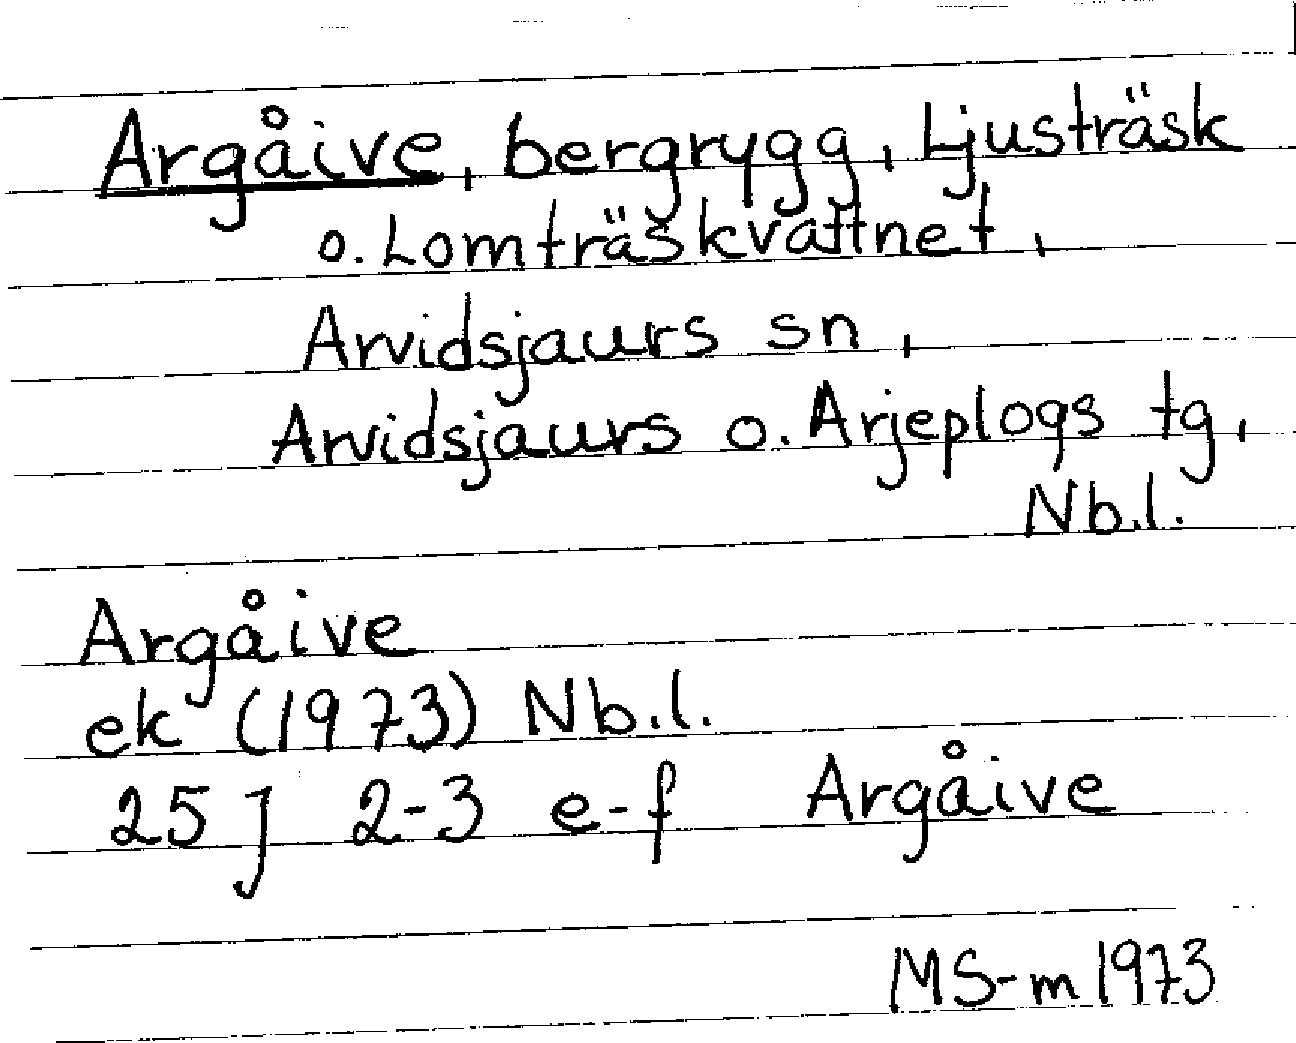 Argåive, bergrygg, Ljusträsk
o. Lomträskvattnet,
Arvidsjaurs sn,
Arvidsjaurs o. Arjeplogs tg,
Nb.l.
Argåive
ek (1973) Nb.l.
25 J 2-3 e-f Argåive
MS-m 1973